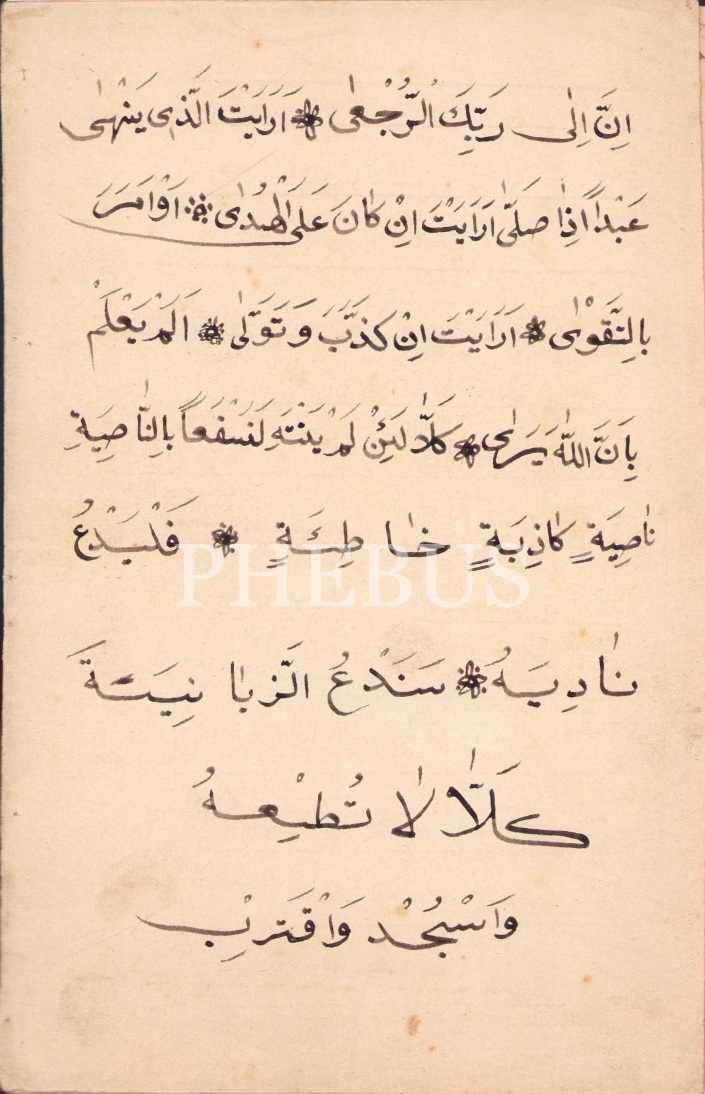 اِنَّ اِلٰى رَبِّكَ الرُّجْعٰى اَرَاَيْتَ الَّذٖى يَنْهٰى
عَبْداً اِذَا صَلّٰى اَرَاَيْتَ اِنْ كَانَ عَلَى الْهُدٰى اَوْ اَمَرَ
بِالتَّقْوٰى اَرَاَيْتَ اِنْ كَذَّبَ وَتَوَلّٰى اَلَمْ يَعْلَمْ
بِاَنَّ اللّٰهَ يَرٰى كَلَّا لَئِنْ لَمْ يَنْتَهِ لَنَسْفَعاً بِالنَّاصِيَةِ
نَاصِيَةٍ كَاذِبَةٍ خَاطِئَةٍ فَلْيَدْعُ
نَادِيَهُ سَنَدْعُ الزَّبَانِيَةَ
كَلَّا لَا تُطِعْهُ
وَاسْجُدْ وَاقْتَرِبْ
PHEBUS